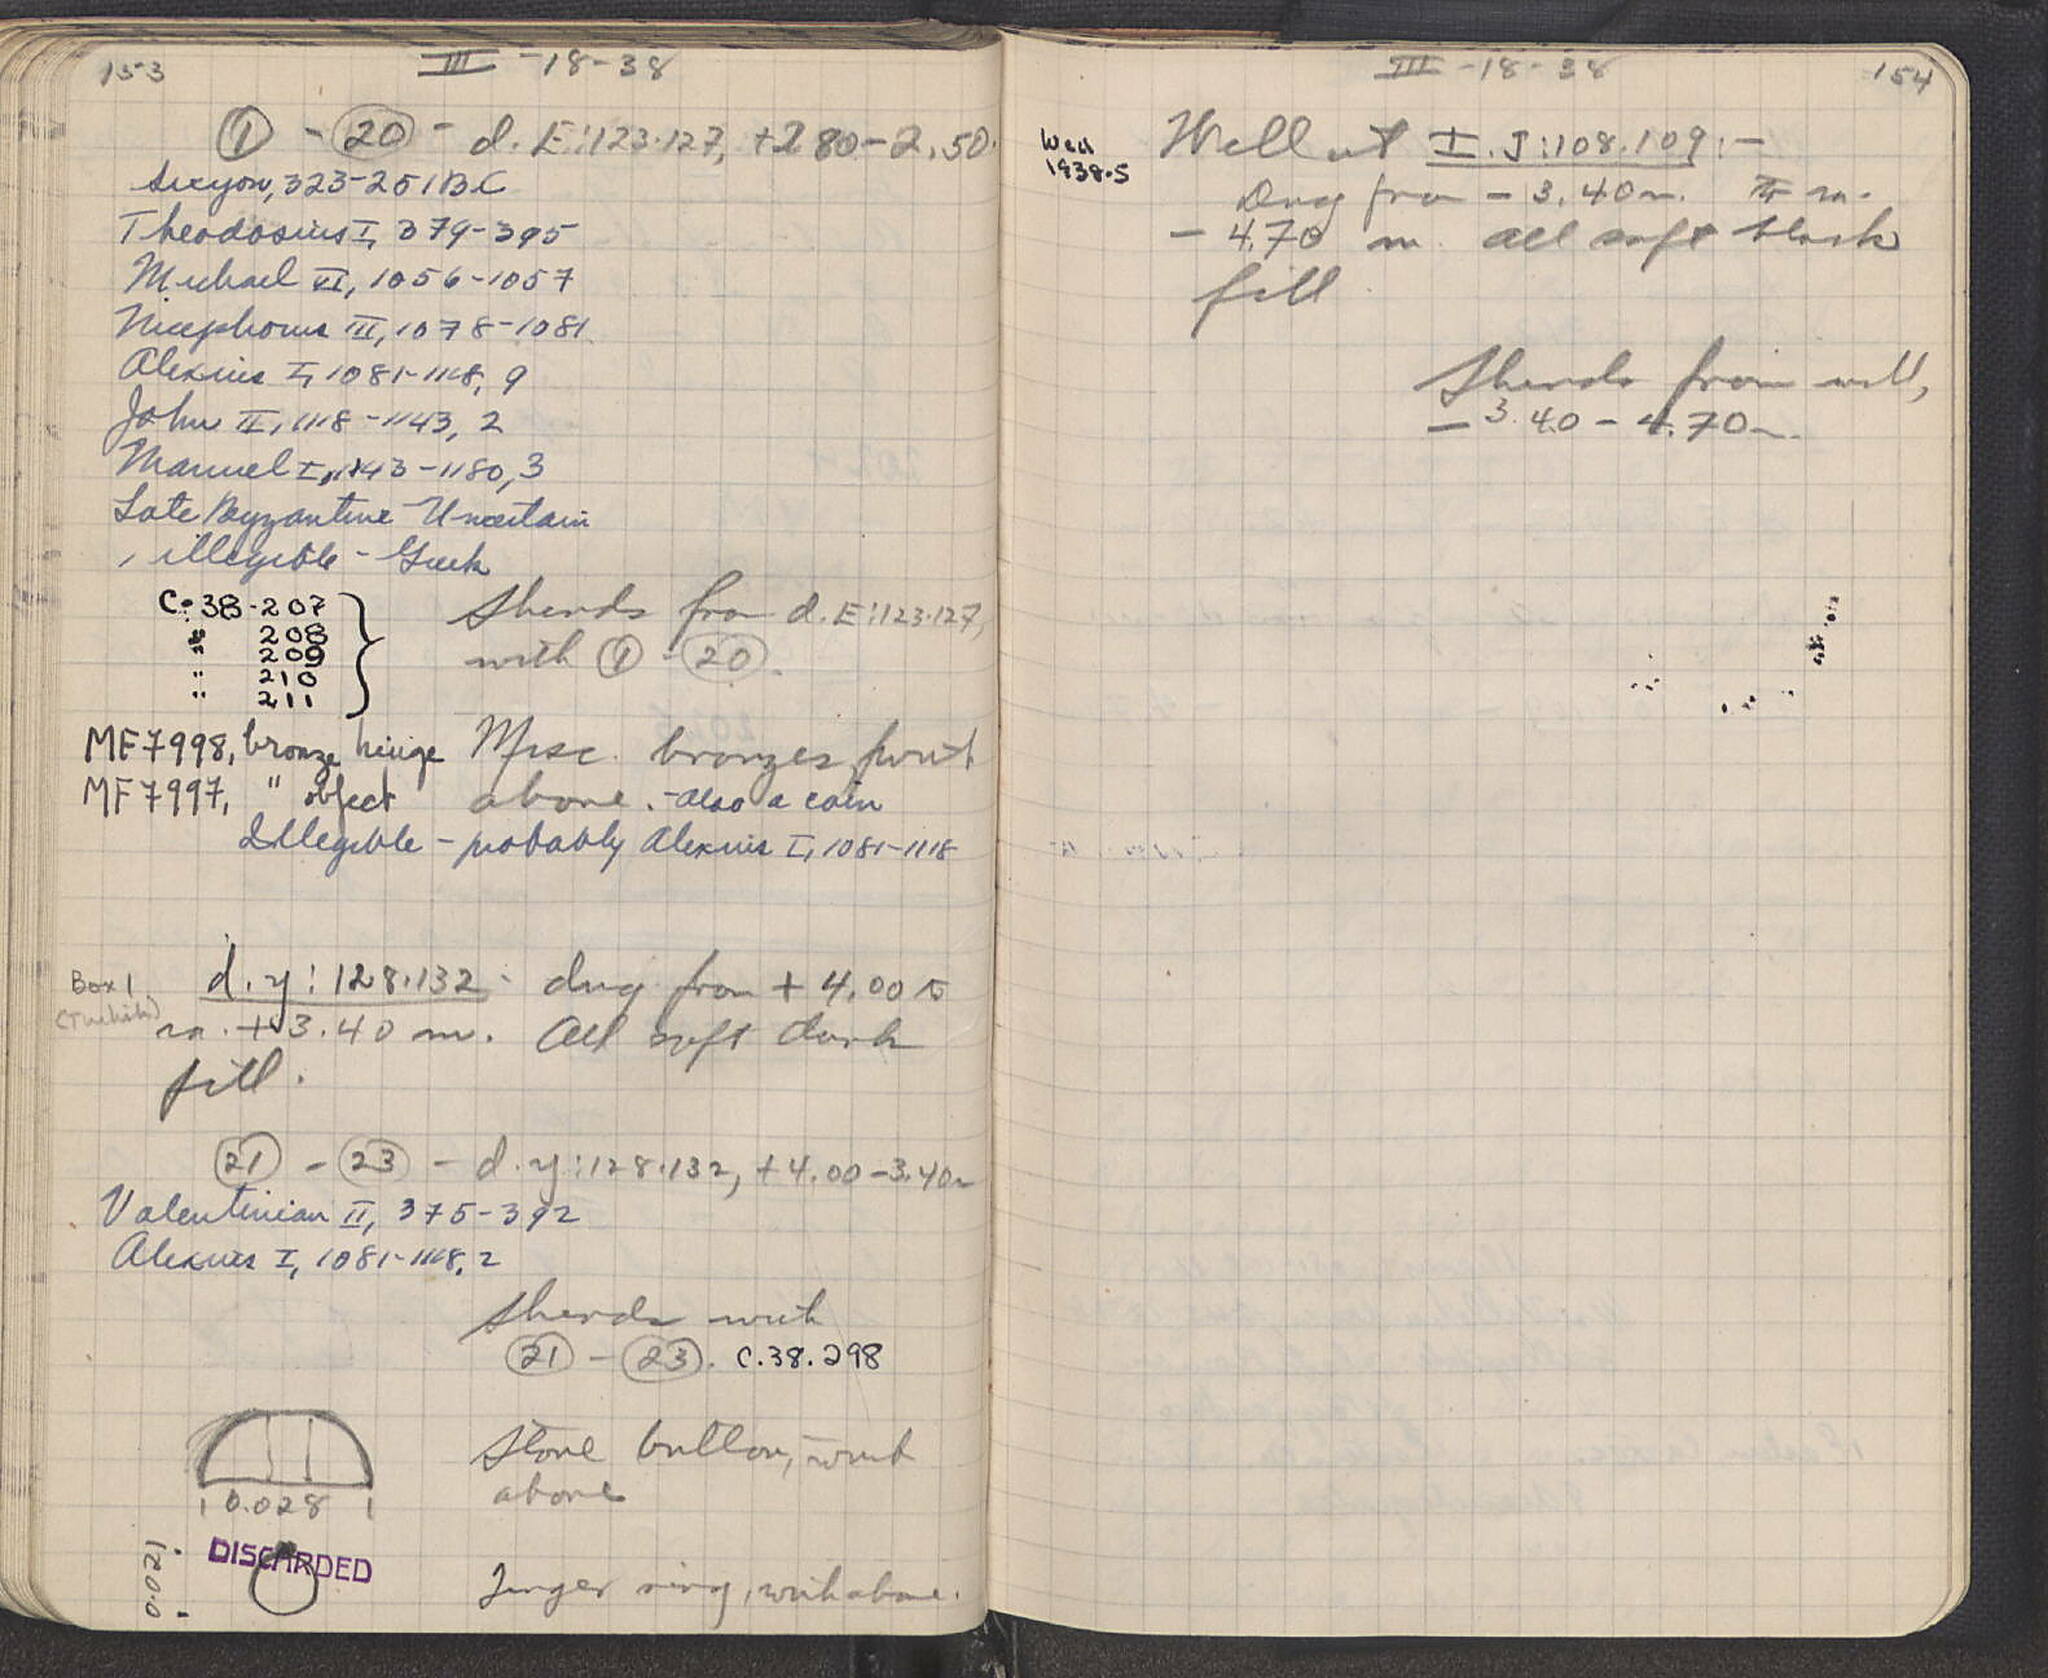 153
III -18-38
① - ⑳ - d.E:123.127, +2.80-2.50.
Sicyon, 323-251 BC
Theodosius I, 379-395
Michael VI, 1056-1057
Nicephorus III, 1078-1081
Alexius I, 1081-1118, 9
John II, 1118-1143, 2
Manuel I, 1143-1180, 3
Late Byzantine Uncertain
, illegible - Greek
C-38-207
" 208
" 209
" 210
" 211
Sherds from d.E:123.127,
with ① - ⑳.
MF7998, bronze hinge
MF7997, " object
Misc. bronzes, with
above. - Also a coin
Illegible - probably Alexius I, 1081-1118
Box 1
(Turkish)
d.y:128.132 - dug from +4.00 to
m. +3.40 m. All soft dark
fill.
㉑ - ㉓ - d.y:128.132, +4.00-3.40m
Valentinian II, 375-392
Alexius I, 1081-1118, 2
Sherds with
㉑ - ㉓. C.38.298
Stone button, with
above
0.028
DISCARDED
0.021
Finger ring, with above.
III -18-38
154
Well
1938-5
Well at I.J:108.109:-
Dug from -3.40m. to m.
-4.70 m. All soft black
fill
Sherds from well,
-3.40-4.70m.